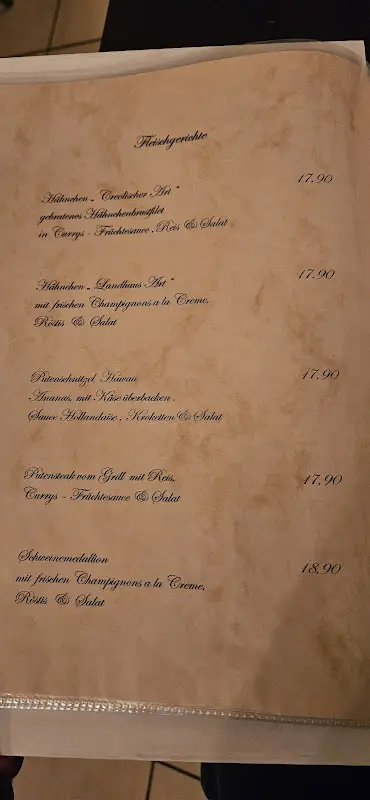 Fleischgerichte
Hähnchen „ Creolischer Art “ 17,90
gebratenes Hähnchenbrustfilet
in Currys - Früchtesauce , Reis & Salat
Hähnchen „ Landhaus Art “ 17,90
mit frischen Champignons a la Creme,
Röstis & Salat
Putenschnitzel Hawaii 17,90
Ananas, mit Käse überbacken ,
Sauce Hollandaise , Kroketten & Salat
Putensteak vom Grill mit Reis, 17,90
Currys - Früchtesauce & Salat
Schweinemedallion 18,90
mit frischen Champignons a la Creme,
Röstis & Salat